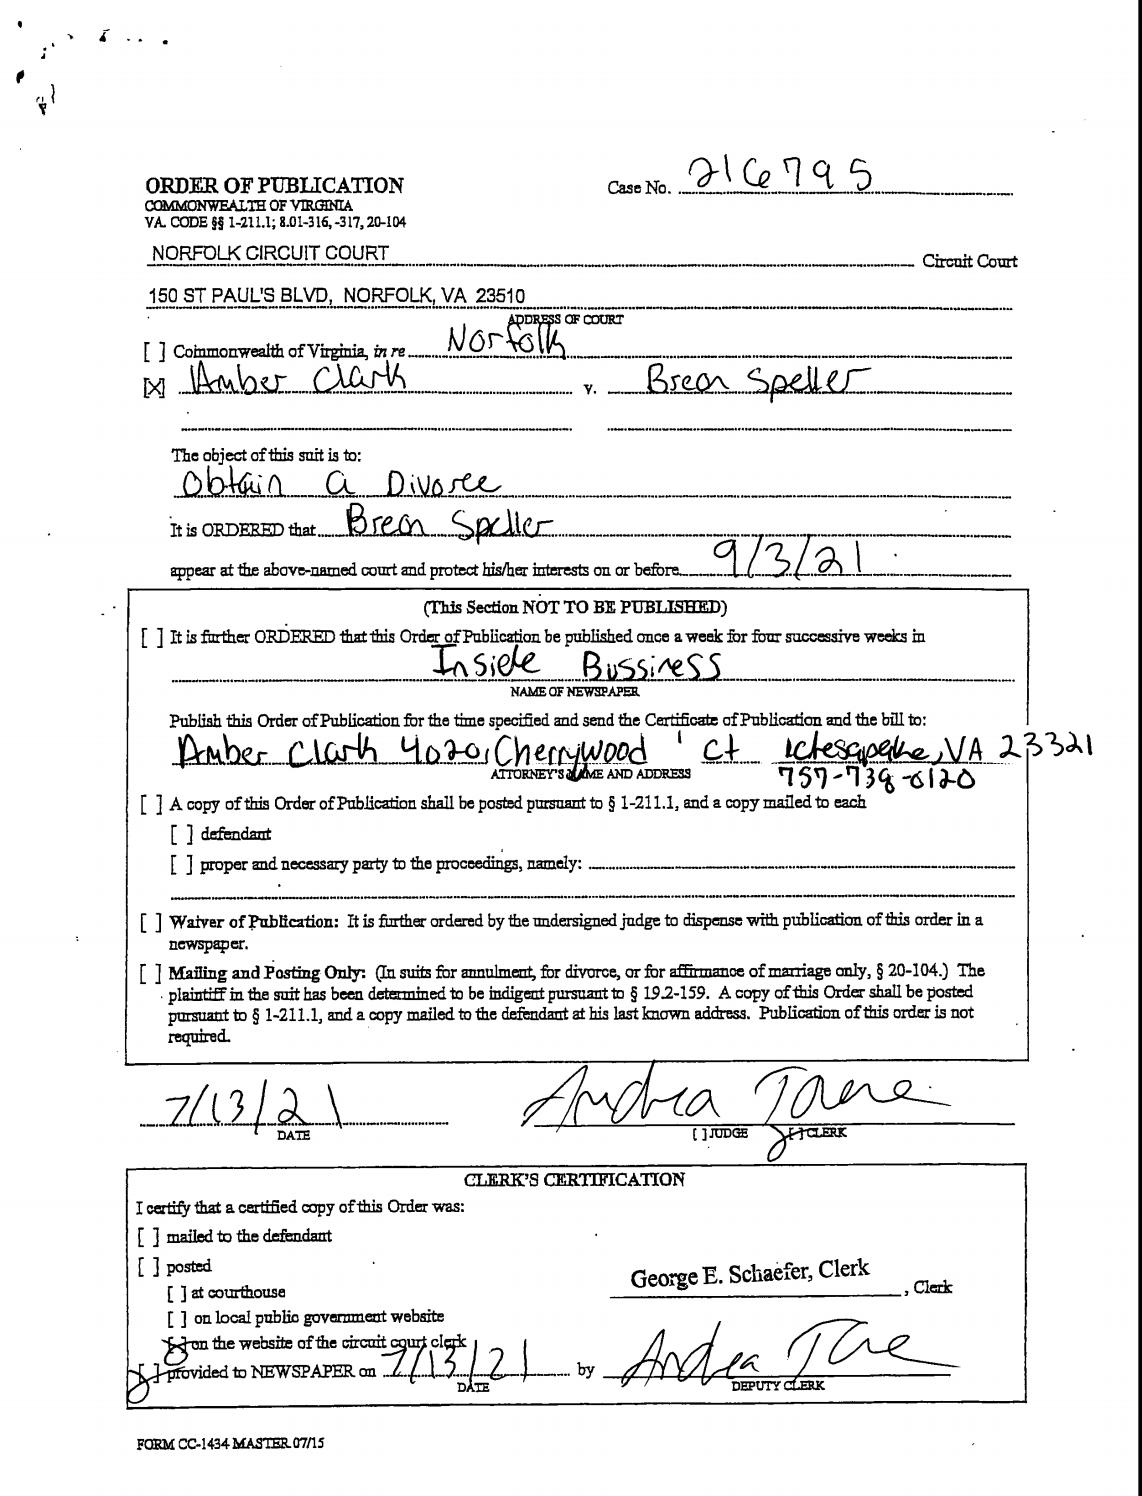 ORDER OF PUBLICATION
Case No. 216795
COMMONWEALTH OF VIRGINIA
VA. CODE §§ 1-211.1; 8.01-316, -317, 20-104
NORFOLK CIRCUIT COURT Circuit Court
150 ST PAUL'S BLVD, NORFOLK, VA 23510
ADDRESS OF COURT
[ ] Commonwealth of Virginia, in re Norfolk
[X] Amber Clark v. Breon Speller
The object of this suit is to:
Obtain a Divorce
It is ORDERED that Breon Speller
appear at the above-named court and protect his/her interests on or before 9/3/21
(This Section NOT TO BE PUBLISHED)
[ ] It is further ORDERED that this Order of Publication be published once a week for four successive weeks in
Inside Bussiness
NAME OF NEWSPAPER
Publish this Order of Publication for the time specified and send the Certificate of Publication and the bill to:
Amber Clark 4020 Cherrywood Ct VA 23321
ATTORNEY'S NAME AND ADDRESS 757-739-6120
[ ] A copy of this Order of Publication shall be posted pursuant to § 1-211.1, and a copy mailed to each
[ ] defendant
[ ] proper and necessary party to the proceedings, namely:
[ ] Waiver of Publication: It is further ordered by the undersigned judge to dispense with publication of this order in a
newspaper.
[ ] Mailing and Posting Only: (In suits for annulment, for divorce, or for affirmance of marriage only, § 20-104.) The
plaintiff in the suit has been determined to be indigent pursuant to § 19.2-159. A copy of this Order shall be posted
pursuant to § 1-211.1, and a copy mailed to the defendant at his last known address. Publication of this order is not
required.
7/13/21 Andrea
DATE [ ] JUDGE [ ] CLERK
CLERK'S CERTIFICATION
I certify that a certified copy of this Order was:
[ ] mailed to the defendant
[ ] posted
George E. Schaefer, Clerk , Clerk
[ ] at courthouse
[ ] on local public government website
[x] on the website of the circuit court clerk
[x] provided to NEWSPAPER on 7/13/21 by Andrea
DATE DEPUTY CLERK
FORM CC-1434 MASTER 07/15